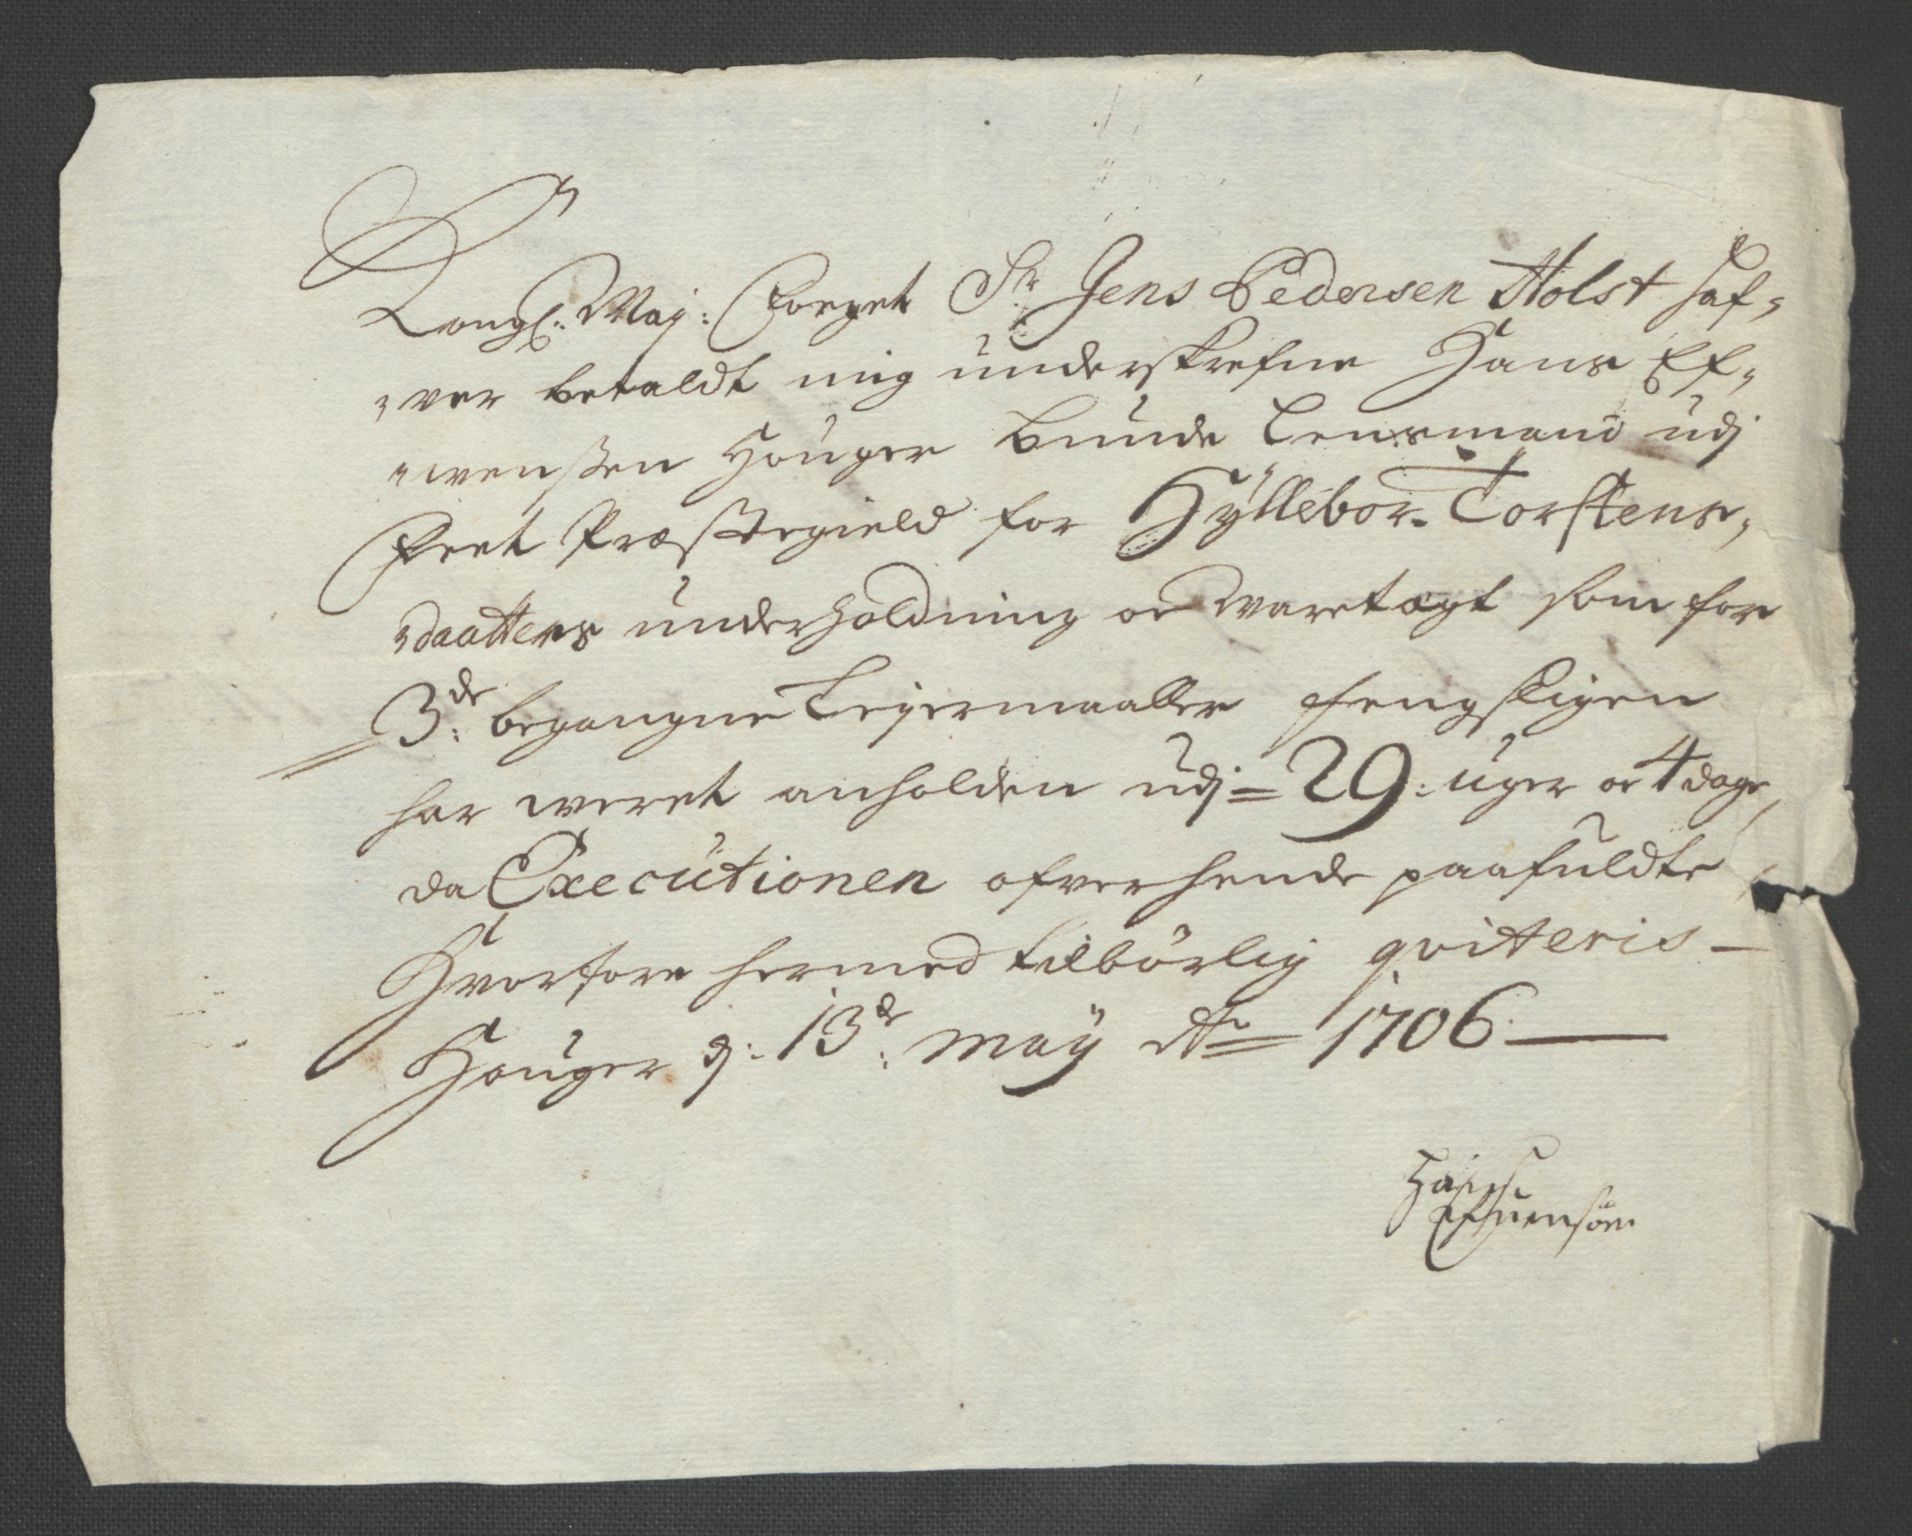 Kongl: May: Foeget Sr Jens Pedersen Holst haf-
-ver betaldt mig underskrefne Hans Ef-
-wenßen Houger bunde Lensmand udj
Eset Præstegield for Hyllebor Torstens-
-daatters underholdning oc waretægt som for
3de: begangne Leyermaaller fengsligen
har weret anholden udj = 29: uger oc 4 dage,
da Executionen ofver hende paafuldte
Hvorfore hermed tilbörlig qviteris -
Houger d: 13de: May Ao 1706
Hans
Efuensön